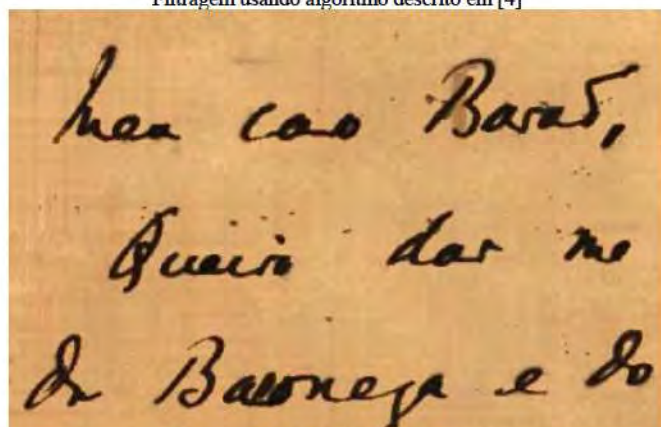 Filtragem usando algoritmo descrito em [4]
Meu caro Barão,
Queira dar me
da Baroneza e do